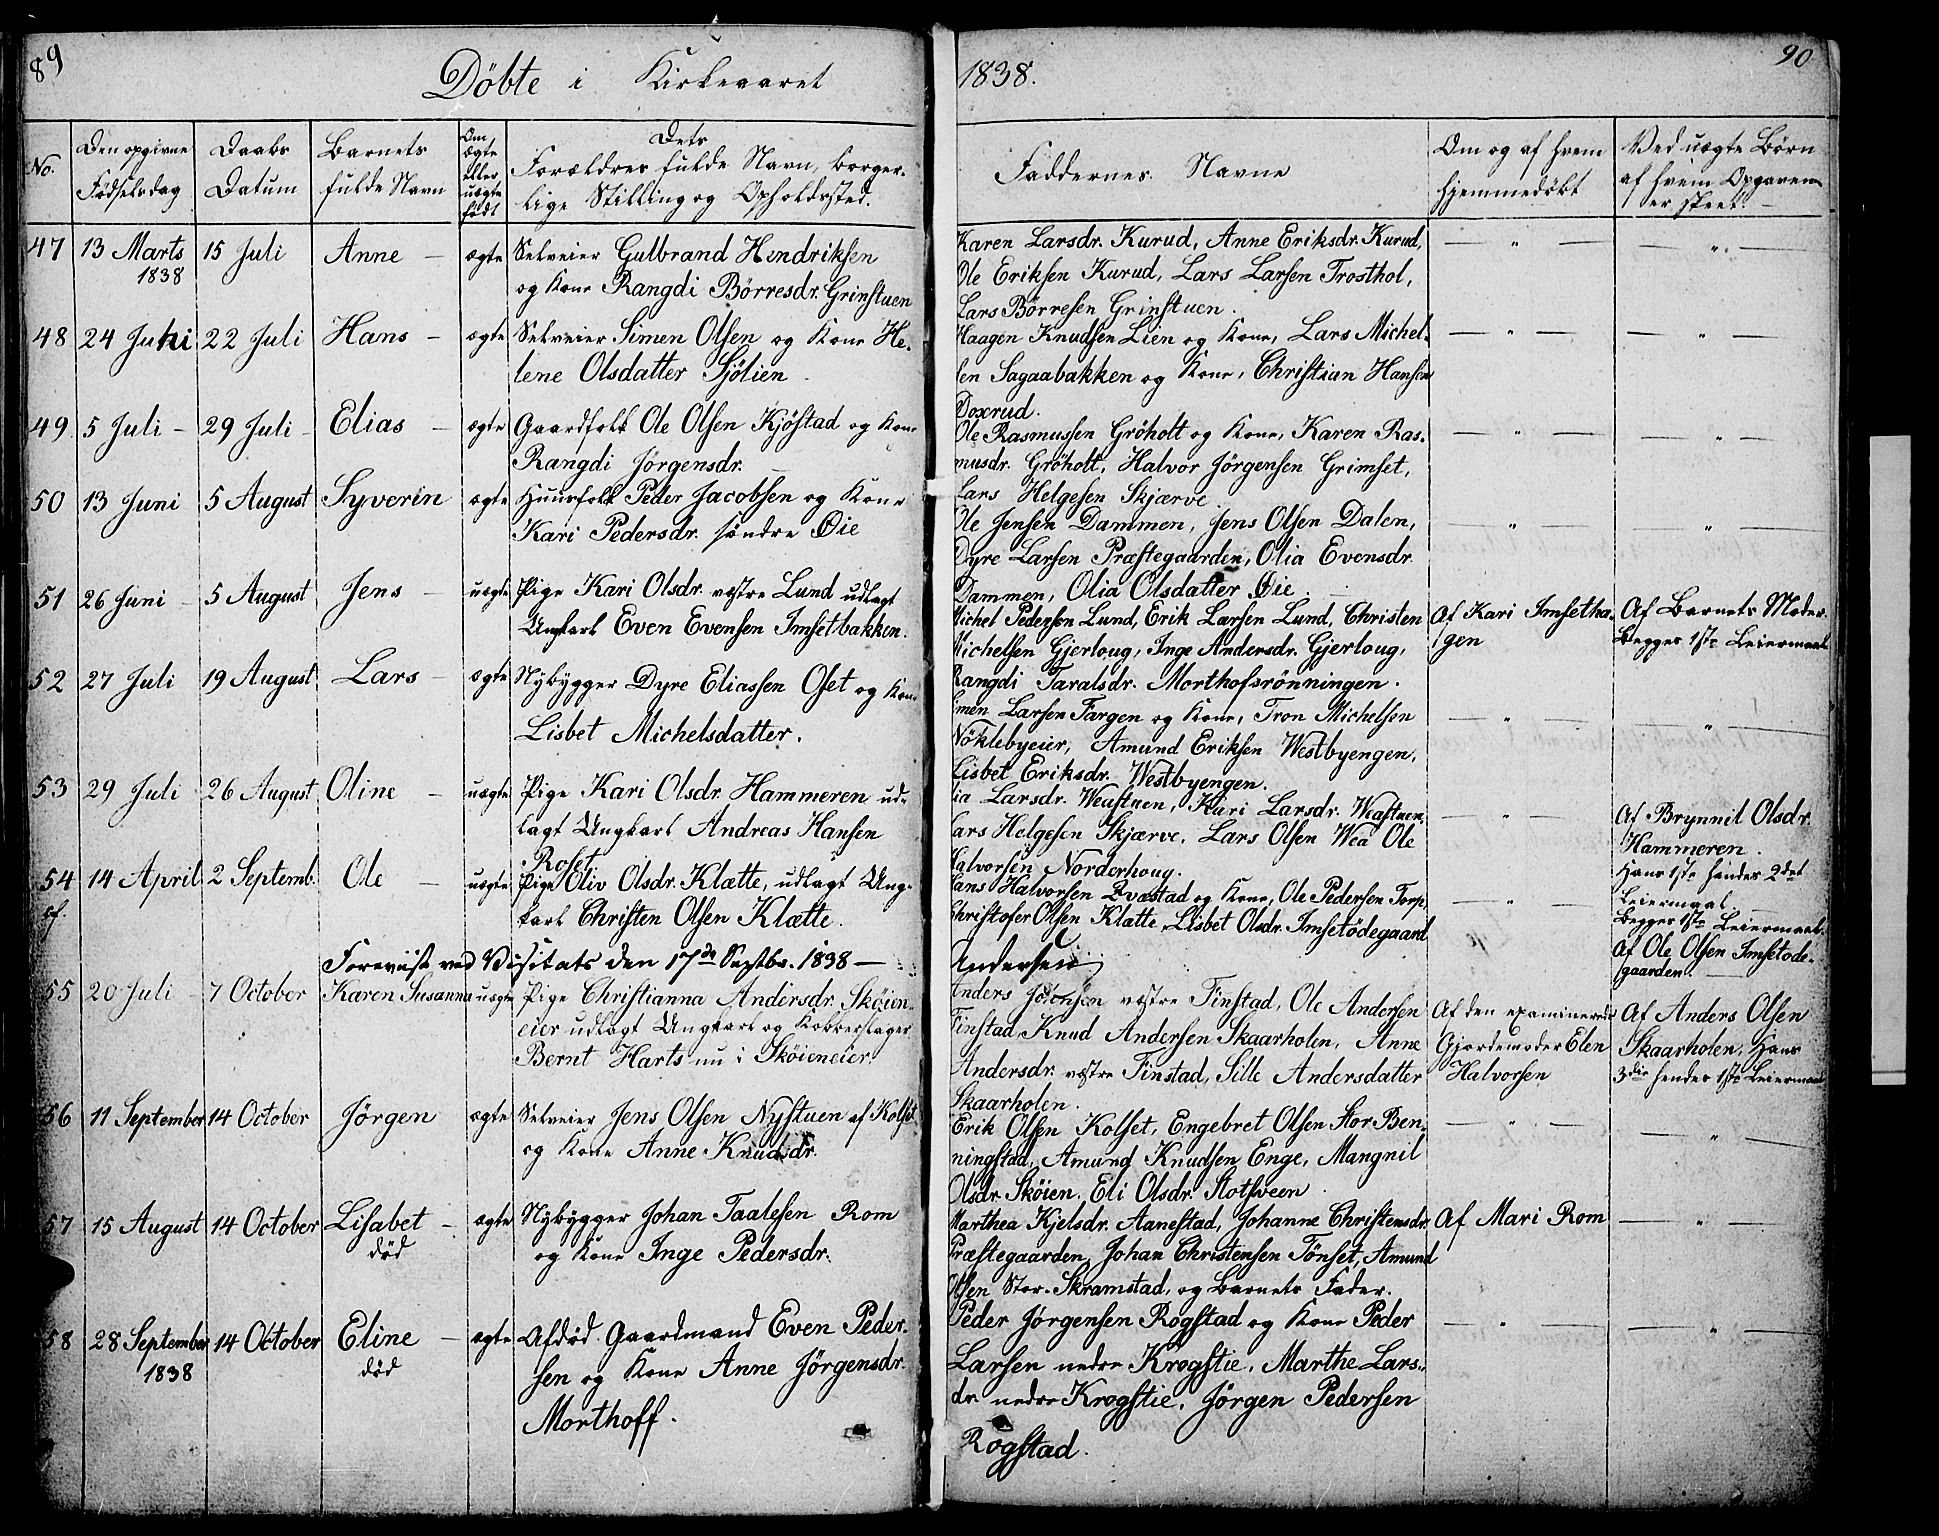 89
Döbte i Kirkeaaret
No.
Den opgivne Födselsdag
Daabs Datum
Barnets fulde Navn
Om ægte eller uægte födt
Dets Forældres fulde Navn, borger-
lige Stilling og Opholdssted.
47 13 Marts 15 Juli Anne — ægte Selveier Gulbrand Hendriksen
1838 og Kone Rangdi Börresdr. Grinstuen
48 24 Juni 22 Juli Hans — ægte Selveier Simen Olsen og Kone He-
lene Olsdatter Sjölien.
49 5 Juli — 29 Juli — Elias — ægte Gaardfolk Ole Olsen Kjöstad og Kone
Rangdi Jörgensdr. —
50 13 Juni 5 August Syverin ægte Huusfolk Peder Jacobsen og Kone
Kari Pedersdr. söndre Öie
51 26 Juni — 5 August Jens — uægte Pige Kari Olsdr. vestre Lund udlagt
Ungkarl Even Evensen Imsetbakken.
52 27 Juli 19 August Lars — ægte Nybygger Dyre Eliassen Oset og Kone
Lisbet Michelsdatter.
53 29 Juli 26 August Oline — uægte Pige Kari Olsdr. Hammeren ud-
lagt Ungkarl Andreas Hansen
Roset
54 14 April 2 Septemb. Ole — uægte Pige Oliv Olsdr. Klætte, udlagt Ung-
karl Christen Olsen Klætte.
Foreviist ved Visitats den 17de Septbr. 1838 —
55 20 Juli — 7 October Karen Susanna uægte Pige Christianna Andersdr. Sköien-
eier udlagt Ungkarl og Kobberslager
Bernt Harts nu i Sköieneier.
56 11 September 14 October Jörgen ægte Selveier Jens Olsen Nystuen af Kolset
og Kone Anne Knudsdr.
57 15 August 14 October Lisabet — ægte Nybygger Johan Taalesen Rom
död og Kone Inge Pedersdr.
58 28 September 14 October Eline — ægte Afdöd Gaardmand Even Peder-
1838 död sen og Kone Anne Jörgensdr.
Morthoff.
1838.
90
Faddernes Navne
Om og af hvem
hjemmedöbt
Ved uægte Börn
af hvem Opgaven
er skeet. —
Karen Larsdr. Kurud, Anne Eriksdr. Kurud, — " — — " —
Ole Eriksen Kurud, Lars Larsen Trosthol,
Lars Börresen Grinstuen.
Haagen Knudsen Lien og Kone, Lars Michel- — " — — " —
sen Sagaabakken og Kone, Christian Hansen
Doxrud.
Ole Rasmussen Gröholt og Kone, Karen Ras- — " — — " —
musdr. Gröholt, Halvor Jörgensen Grimset,
Lars Helgesen Skjærve
Ole Jensen Dammen, Jens Olsen Dalen, — " — — " —
Dyre Larsen Præstegaarden, Olia Evensdr.
Dammen, Olia Olsdatter Öie. —
Michel Pedersen Lund, Erik Larsen Lund, Christen Af Kari Imsetha- Af Barnets Moder.
Michelsen Gjerloug, Inge Andersdr. Gjerloug, gen Begges 1ste Leiermaal
Rangdi Taralsdr. Morthofsrönningen.
Simen Larsen Fargen og Kone, Tron Michelsen — " — — " —
Nöklebyeier, Amund Eriksen Westbyengen,
Lisbet Eriksdr. Westbyengen.
Larsdr. Weastuen, Kari Larsdr. Weastuen, — " — Af Brynnil Olsdr.
Lars Helgesen Skjærve, Lars Olsen Wea Ole Hammeren.
Halvorsen Norderhoug. Hans 1ste hendes 2det
Leiermaal.
Hans Halvorsen Qvæstad og Kone, Ole Pedersen Torp, — " — Begges 1ste Leiermaal.
Christofer Olsen Klætte, Lisbet Olsdr. Imsetödegaard Af Ole Olsen Imsetöde-
gaarden. —
Andersen
Anders vestre Finstad, Ole Andersen Af den examinerede Af Anders Olsen
Finstad, Knud Andersen Skaarholen, Anne Gjordemoder Elen Skaarholen, Hans
Andersdr. vestre Finstad, Sille Andersdatter Halvorsen 3die hendes 1ste Leiermaal
Skaarholen.
Erik Olsen Kolset, Engebret Olsen Stor Ben- — " — — " —
ningstad, Amund Knudsen Enge, Mangnil
Olsdr. Sköien, Eli Olsdr. Slotsveen.
Marthea Kjelsdr. Aanestad, Johanne Christensdr. Af Mari Rom — " —
Præstegaarden, Johan Christensen Tönset, Amund
Olsen Stor-Skramstad, og Barnets Fader.
Peder Jörgensen Rogstad og Kone Peder — " — — " —
Larsen nedre Krogstie, Marthe Lars-
dr. nedre Krogstie, Jörgen Pedersen
Rogstad.